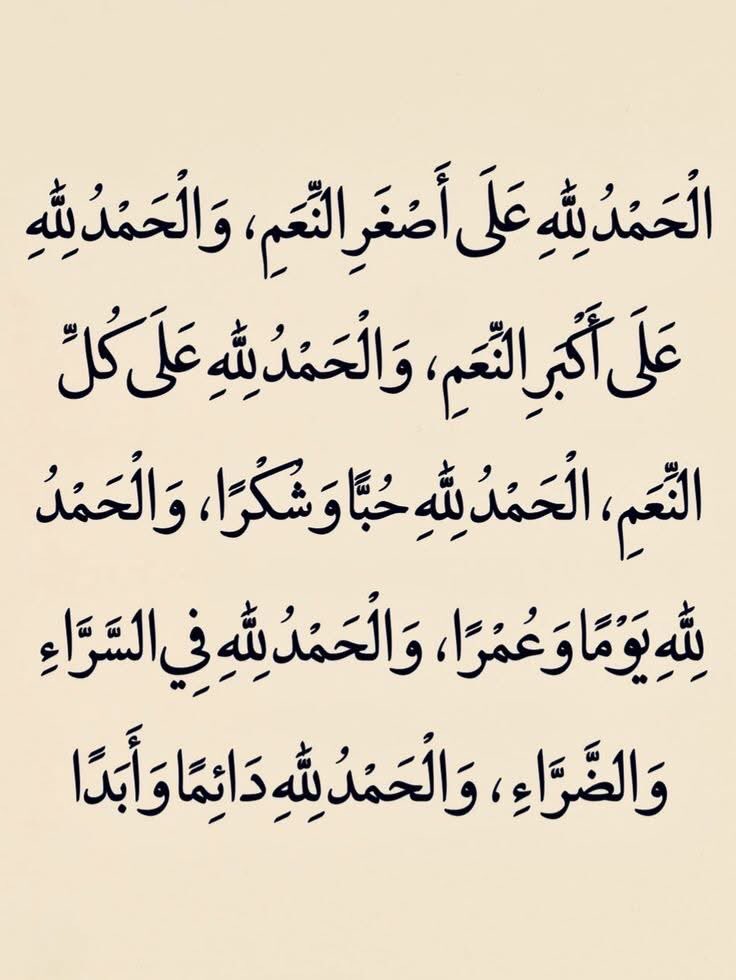 الْحَمْدُ لِلّٰهِ عَلَى أَصْغَرِ النِّعَمِ، وَالْحَمْدُ لِلّٰهِ
عَلَى أَكْبَرِ النِّعَمِ، وَالْحَمْدُ لِلّٰهِ عَلَى كُلِّ
النِّعَمِ، الْحَمْدُ لِلّٰهِ حُبًّا وَشُكْرًا، وَالْحَمْدُ
لِلّٰهِ يَوْمًا وَعُمْرًا، وَالْحَمْدُ لِلّٰهِ فِي السَّرَّاءِ
وَالضَّرَّاءِ، وَالْحَمْدُ لِلّٰهِ دَائِمًا وَأَبَدًا